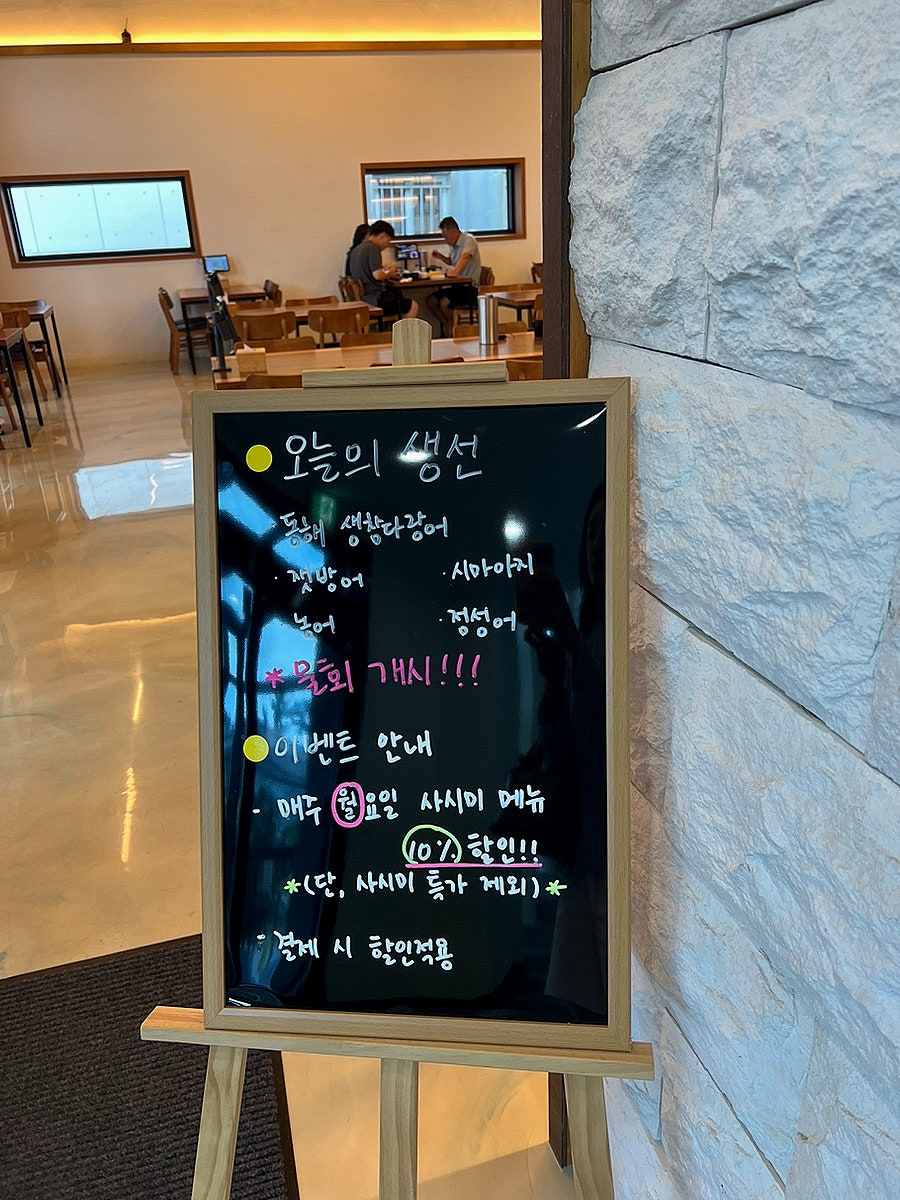 오늘의 생선
· 동해 생참다랑어
· 잿방어 · 시마아지
· 농어 · 점성어
* 물회 개시!!!
이벤트 안내
- 매주 월요일 사시미 메뉴
10% 할인!!
*(단, 사시미 특가 제외)*
- 결제 시 할인적용